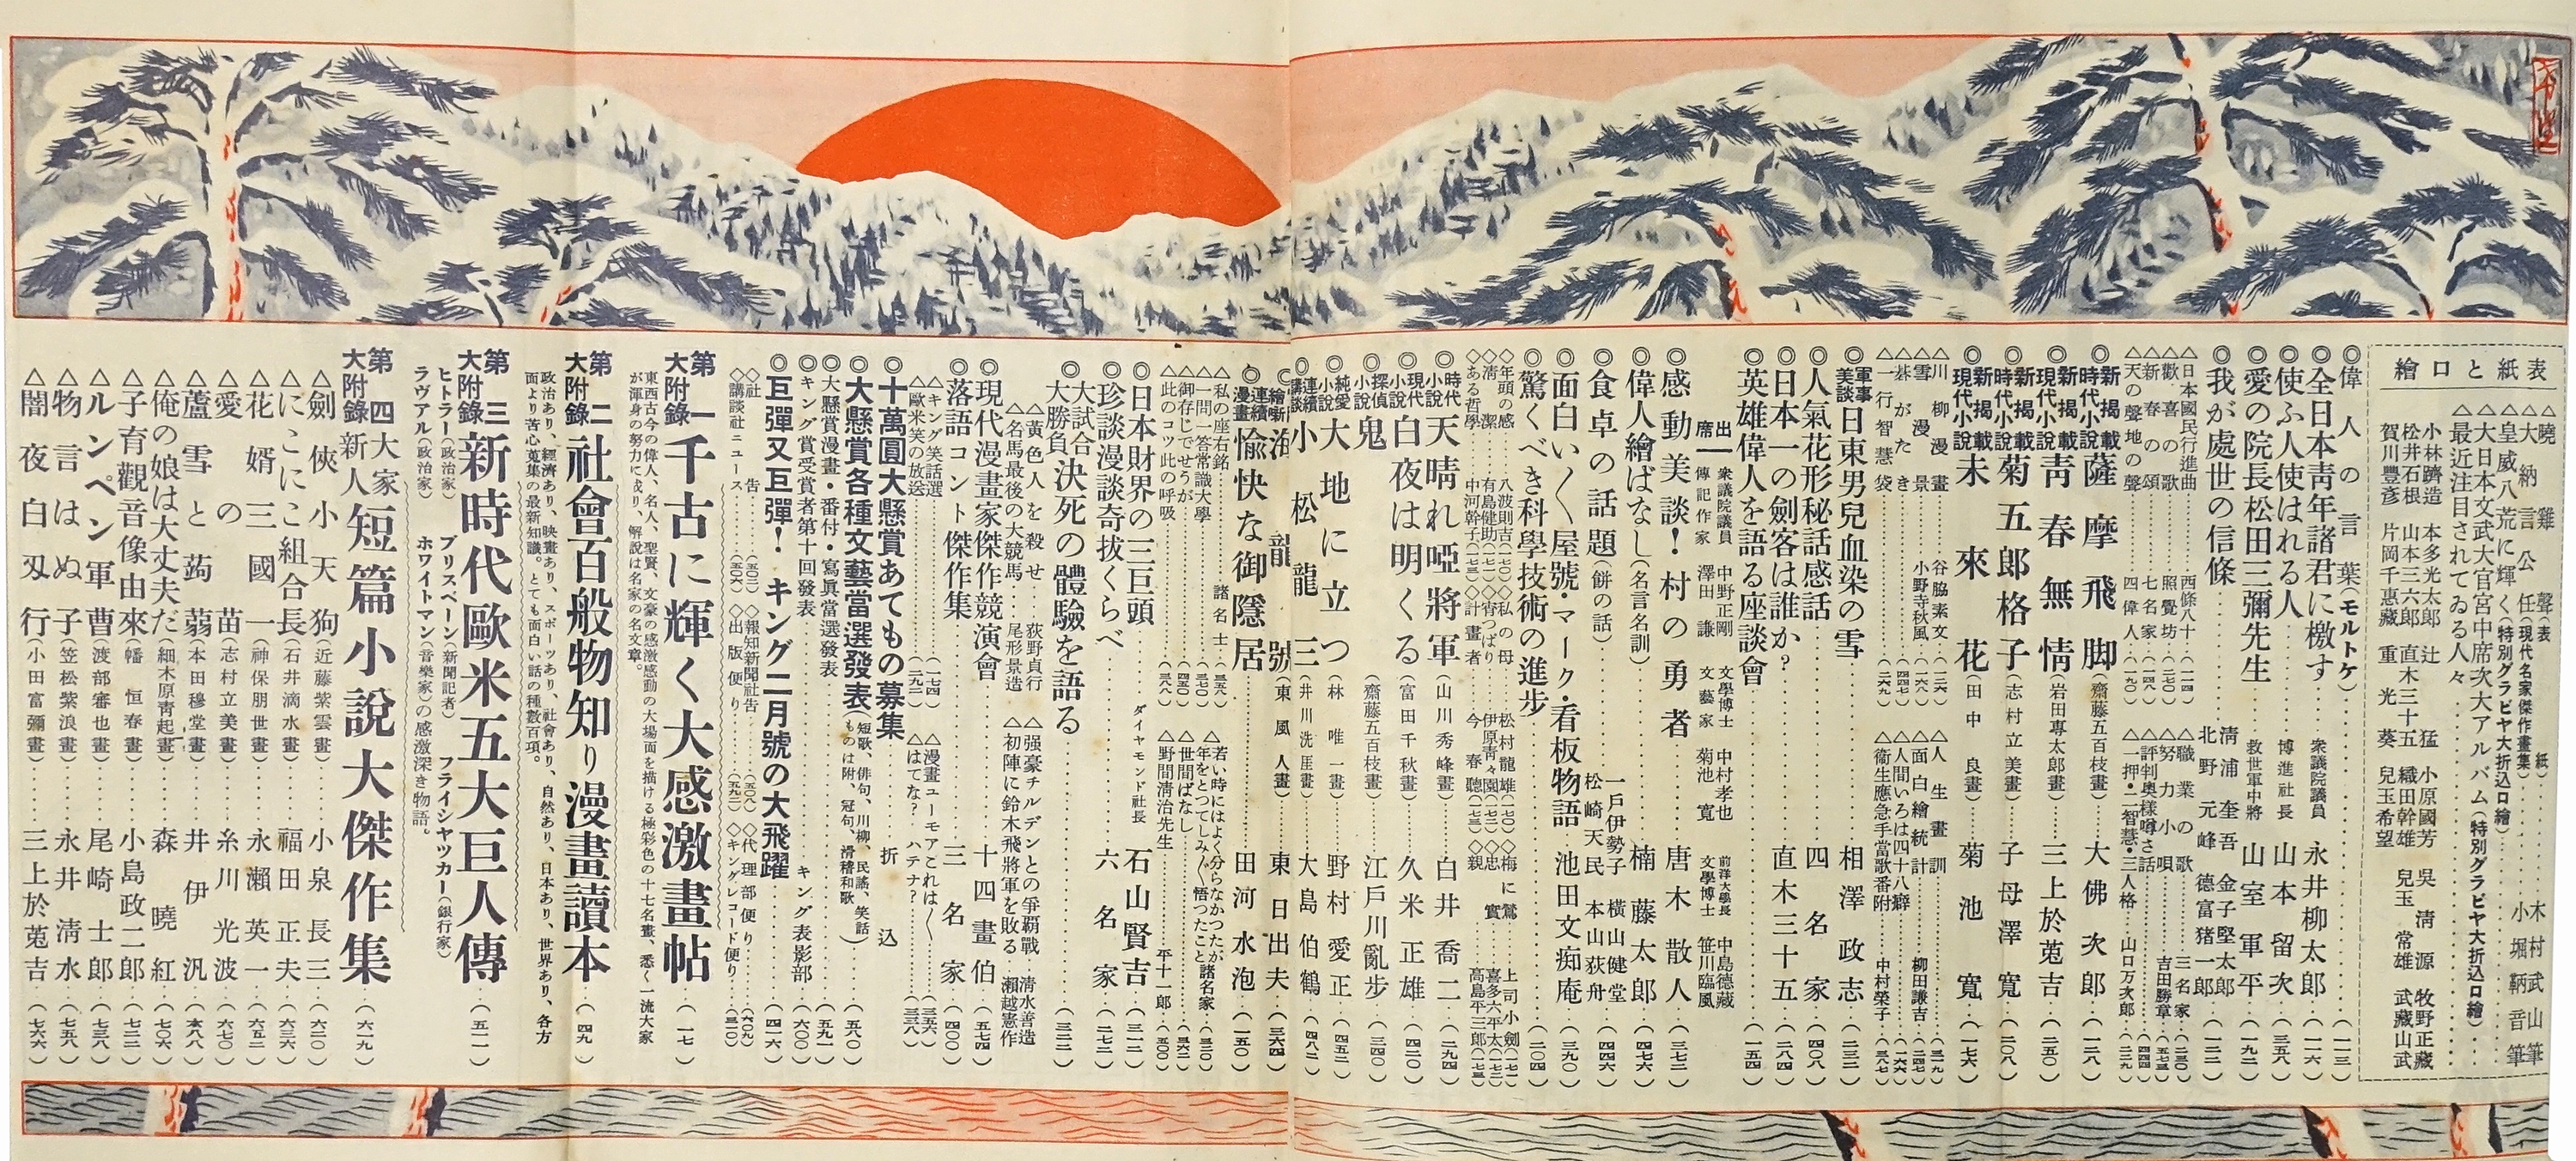 表紙と口繪
△曉……（表紙）……木村武山筆
△大納言公任（現代名家傑作畫集）……小堀鞆音筆
△皇威八荒に輝く（特別グラビヤ大折込口繪）
△大日本文武大官宮中席次大アルバム（特別グラビヤ大折込口繪）
△最近注目されてゐる人々
小林躋造 本多光太郎 辻 猛 小原國芳 吳 清源 牧野正藏
松井石根 山本三六郎 直木三十五 織田幹雄 兒玉常雄 武藏山武
賀川豐彦 片岡千惠藏 重光 葵 兒玉希望
◎偉人の言葉（モルトケ）……（一一三）
◎全日本靑年諸君に檄す 衆議院議員 永井柳太郎（一一六）
◎使ふ人使はれる人 博進社長 山本留次（三五八）
◎愛の院長松田三彌先生 救世軍中將 山室軍平（一九二）
◎我が處世の信條 淸浦奎吾 金子堅太郎 北野元峰 德富猪一郎（一二二）
△日本國民行進曲…西條八十（一一四）
△歡喜の歌…照覺坊（一七〇）
△新春の頌…七名家（一四八）
△天の聲地の聲…四偉人（一九〇）
△職業の歌…三名家（二三〇）
△努力小唄…吉田勝章（五七三）
△評判奥樣噂さ話……（四四四）
△一押・二智慧・三人格…山口万次郎（三二九）
◎新揭載時代小說 薩摩飛脚（齋藤五百枝畫）大佛次郎（一二八）
◎新揭載現代小說 靑春無情（岩田專太郎畫）三上於菟吉（二五〇）
◎新揭載時代小說 菊五郎格子（志村立美畫）子母澤寬（二〇八）
◎新揭載現代小說 未來花（田中良畫）菊池寬（一七六）
△川柳漫畫…谷脇素文（一二六）
△雪漫景…小野寺秋風（一六八）
△碁がたき……（四四七）
△一行智慧袋……（二六九）
△人生畫訓……（三一九）
△面白繪統計…柳田謙吉（二四七）
△人間いろは四十八癖……（一六六）
△衞生應急手當歌番附…中村榮子（三八七）
◎軍事美談 日東男兒血染の雪 相澤政志（二三二）
◎人氣花形秘話感話 四名家（四〇八）
◎日本一の劍客は誰か？ 直木三十五（二八四）
◎英雄偉人を語る座談會……（一五四）
出席 衆議院議員 中野正剛 文學博士 中村孝也 前洋大學長 中島德藏
傳記作家 澤田謙 文藝家 菊池寬 文學博士 笹川臨風
◎感動美談！村の勇者 唐木散人（三七二）
◎偉人繪ばなし（名言名訓）楠藤太郎（四七六）
◎食卓の話題（餠の話）一戶伊勢子 橫山健堂 松崎天民 本山荻舟（四四六）
◎面白い〱屋號・マーク・看板物語 池田文痴庵（三九〇）
◎驚くべき科學技術の進步……（二〇四）
◇年頭の感…八波則吉（一七〇）◇私の母…松村龍雄（一七〇）◇梅に鶯…上司小劍（一七一）
◇淸潔…有島健助（一七一）◇突つぱり…伊原靑々園（一七二）◇忠實…喜多六平太（一七二）
◇ある哲學…中河幹子（一七三）◇計畫者…今春聽（一七三）◇親…高島平三郎（一七三）
◎時代小說 天晴れ啞將軍（山川秀峰畫）白井喬二（二九四）
◎現代小說 白夜は明くる（富田千秋畫）久米正雄（四二〇）
◎探偵小說 鬼（齋藤五百枝畫）江戶川亂步（三四〇）
◎純愛小說 大地に立つ（林唯一畫）野村愛正（四五二）
◎連續講談 小松龍三（井川洗厓畫）大島伯鶴（四八二）
◎繪噺 海龍號（東風人畫）東日出夫（三六四）
◎連續漫畫 愉快な御隱居 田河水泡（一五〇）
△私の座右銘…諸名士（三五八）
△一問一答常識大學……（三七〇）
△御存じでせうが……（四五〇）
△此のコツ此の呼吸……（三八八）
△若い時にはよく分らなかつたが年をとつてしみ〲悟つたこと 諸名家…（三二〇）
△世間ばなし……（三六二）
△野間淸治先生…平十一郎（五〇〇）
◎日本財界の三巨頭 ダイヤモンド社長 石山賢吉（三一二）
◎珍談漫談奇拔くらべ 六名家（二七二）
◎大試合大勝負決死の體驗を語る……（三二二）
△黃色人を殺せ…荻野貞行
△名馬最後の大競馬…尾形景造
△强豪チルデンとの爭覇戰…淸水善造
△初陣に鈴木飛將軍を敗る…瀨越憲作
◎現代漫畫家傑作競演會 十四畫伯（五七四）
◎落語コント傑作集 三名家（四〇〇）
△キング笑話選……（一七四）
△歐米笑の放送……（二九二）
△漫畫ユーモアこれは〱……（三五六）
△はてな？ハテナ？……（三三八）
◎十萬圓大懸賞あてもの募集……折込
◎大懸賞各種文藝當選發表（短歌、俳句、川柳、民謠、笑話、もの は附、冠句、滑稽和歌）……（五八〇）
◎大懸賞漫畫・番付・寫眞當選發表……（五九一）
◎キング賞受賞者第十回發表…キング表彰部（六〇〇）
◎巨彈又巨彈！キング二月號の大飛躍……（四一六）
◇社告……（五〇二）◇報知新聞社吿……（五〇八）◇代理部便り……（七〇九）
◇講談社ニュース……（五〇六）◇出版便り……（五九二）◇キングレコード便り……（三一〇）
第一大附錄 千古に輝く大感激畫帖……（一七）
東西古今の偉人、名人、聖賢、文豪の感激感動の大場面を描ける極彩色の十七名畫、悉く一流大家が渾身の努力に成り、解說は名家の名文章。
第二大附錄 社會百般物知り漫畫讀本……（四九）
政治あり、經濟あり、映畫あり、スポーツあり、社會あり、自然あり、日本あり、世界あり、各方面より苦心蒐集の最新知識。とても面白い話の種數百項。
第三大附錄 新時代歐米五大巨人傳……（五一一）
ヒトラー（政治家） ブリスベーン（新聞記者） フライシヤツカー（銀行家）
ラヴアル（政治家） ホワイトマン（音樂家）の感激深き物語。
第四大附錄 大家新人 短篇小說大傑作集……（六一九）
△劍俠小天狗（近藤紫雲畫）……小泉長三（六二〇）
△にこにこ組合長（石井滴水畫）……福田正夫（六三六）
△花婿三國一（神保朋世畫）……永瀨英一（六五二）
△愛の苗（志村立美畫）……糸川光波（六七〇）
△蘆雪と蒟蒻（本田穆堂畫）……井伊汎（六八八）
△俺の娘は大丈夫だ（細木原靑起畫）……森曉紅（七〇六）
△子育觀音像由來（幡恒春畫）……小島政二郎（七二二）
△ルンペン軍曹（渡部審也畫）……尾崎士郎（七三八）
△物言はぬ子（笠松紫浪畫）……永井淸水（七五八）
△闇夜白刄行（小田富彌畫）……三上於菟吉（七六六）